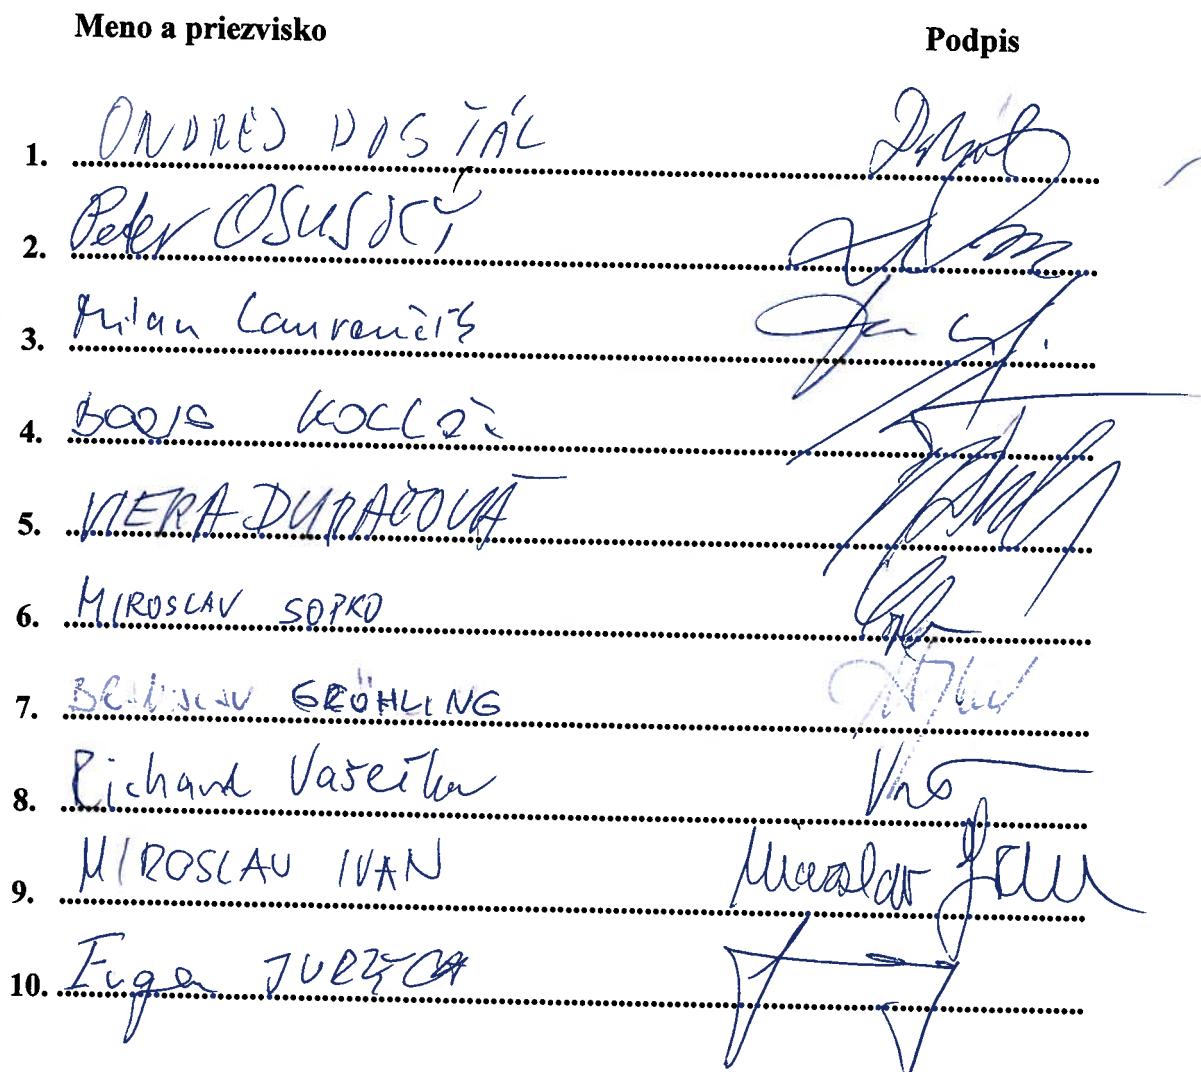 Meno a priezvisko Podpis
1. ONDREJ DOSTÁL
2. Peter OSUSKÝ
3. Milan Laurenčík
4. BORIS KOLLÁR
5. VIERA DUBAČOVÁ
6. MIROSLAV SOPKO
7. BRANISLAV GRÖHLING
8. Richard Vašečka
9. MIROSLAV IVAN Miroslav Ivan
10. Eugen JURZYCA